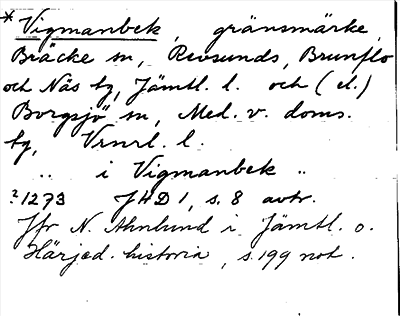 * Vigmanbek, gränsmärke,
Bräcke sn, Revsunds, Brunflo
och Näs tg, Jämtl. l. och (el.)
Borgsjö sn, Med. v. doms.
tg, Vrnrl. l.
.. i Vigmanbek ..
?1273 JHD 1, s. 8 avtr.
Jfr N. Ahnlund i Jämtl. o.
Härjed. historia, s. 199 not.